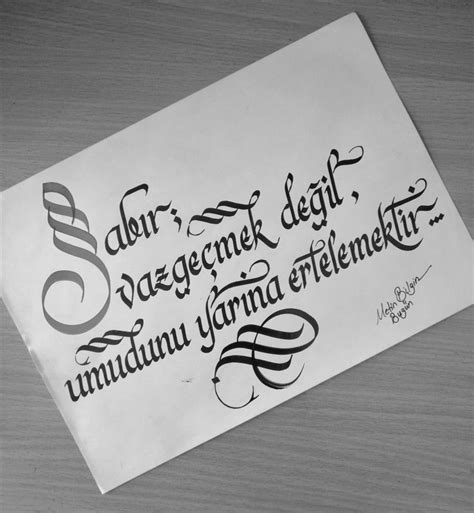 Sabır;
vazgeçmek değil,
umudunu yarına ertelemektir...
Metin Bilgin